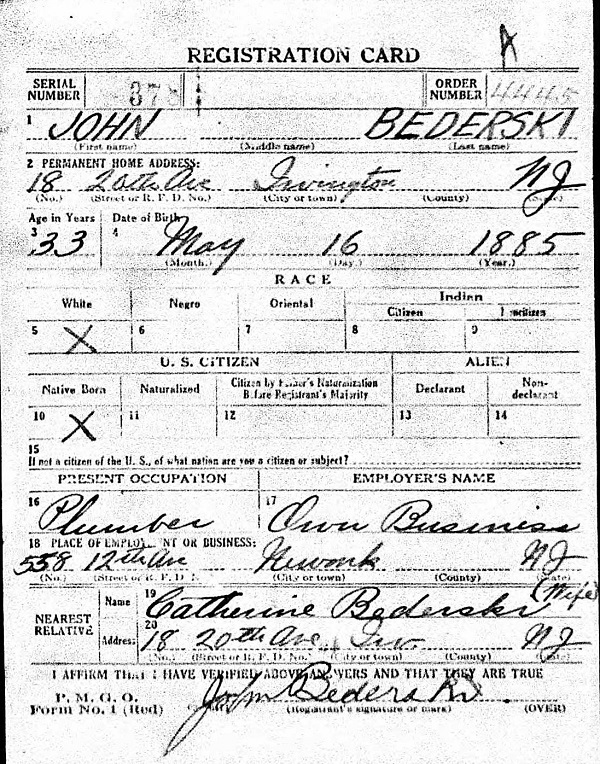 A
REGISTRATION CARD
SERIAL NUMBER 378 ORDER NUMBER 4445
1 JOHN BEDERSKI
(First name) (Middle name) (Last name)
2 PERMANENT HOME ADDRESS:
18 20th Ave Irvington NJ
(No.) (Street or R. F. D. No.) (City or town) (County) (State)
Age in Years Date of Birth
3 33 4 May 16 1885
(Month.) (Day.) (Year.)
RACE
White Negro Oriental Indian
Citizen Noncitizen
5 X 6 7 8 9
U. S. CITIZEN ALIEN
Native Born Naturalized Citizen by Father's Naturalization Before Registrant's Majority Declarant Non-declarant
10 X 11 12 13 14
15
If not a citizen of the U. S., of what nation are you a citizen or subject?
PRESENT OCCUPATION EMPLOYER'S NAME
16 Plumber 17 Own Business
18 PLACE OF EMPLOYMENT OR BUSINESS:
558 12th Ave Newark NJ
(No.) (Street or R. F. D. No.) (City or town) (County) (State)
NEAREST RELATIVE Name 19 Catherine Bederski (Wife)
Address: 20 18 20th Ave Irv. NJ
(No.) (Street or R. F. D. No.) (City or town) (County) (State)
I AFFIRM THAT I HAVE VERIFIED ABOVE ANSWERS AND THAT THEY ARE TRUE
P. M. G. O.
Form No. 1 (Red) John Bederski
(Registrant's signature or mark) (OVER)